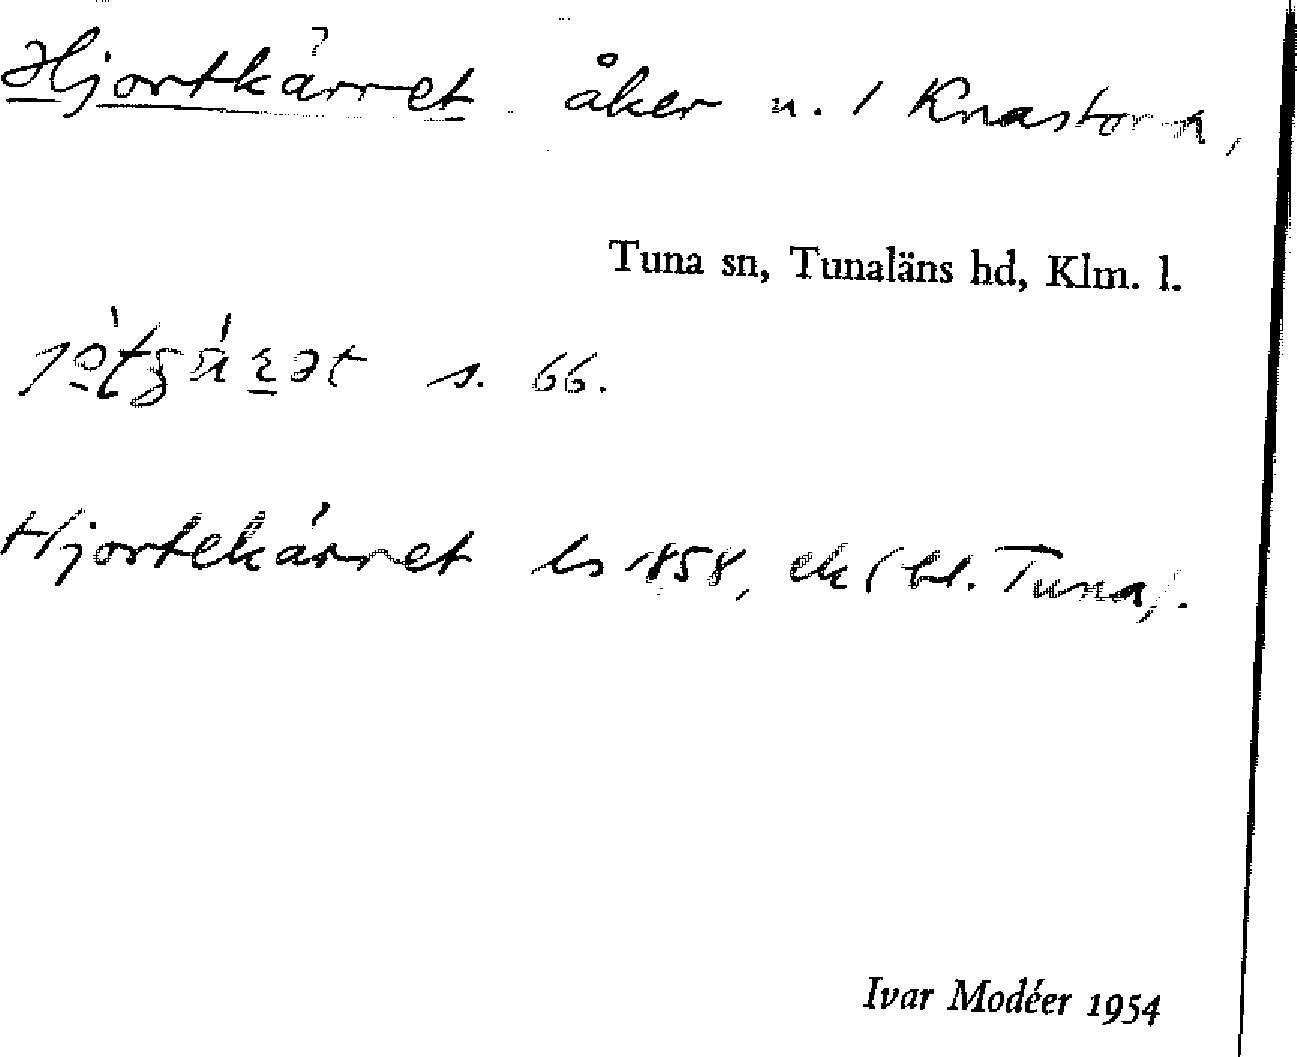 Hjortkärret åker n. 1 Knastorp,
Tuna sn, Tunaläns hd, Klm. l.
s. 66.
Hjortekärret ls 1858, ek (bl. Tuna).
Ivar Modéer 1954